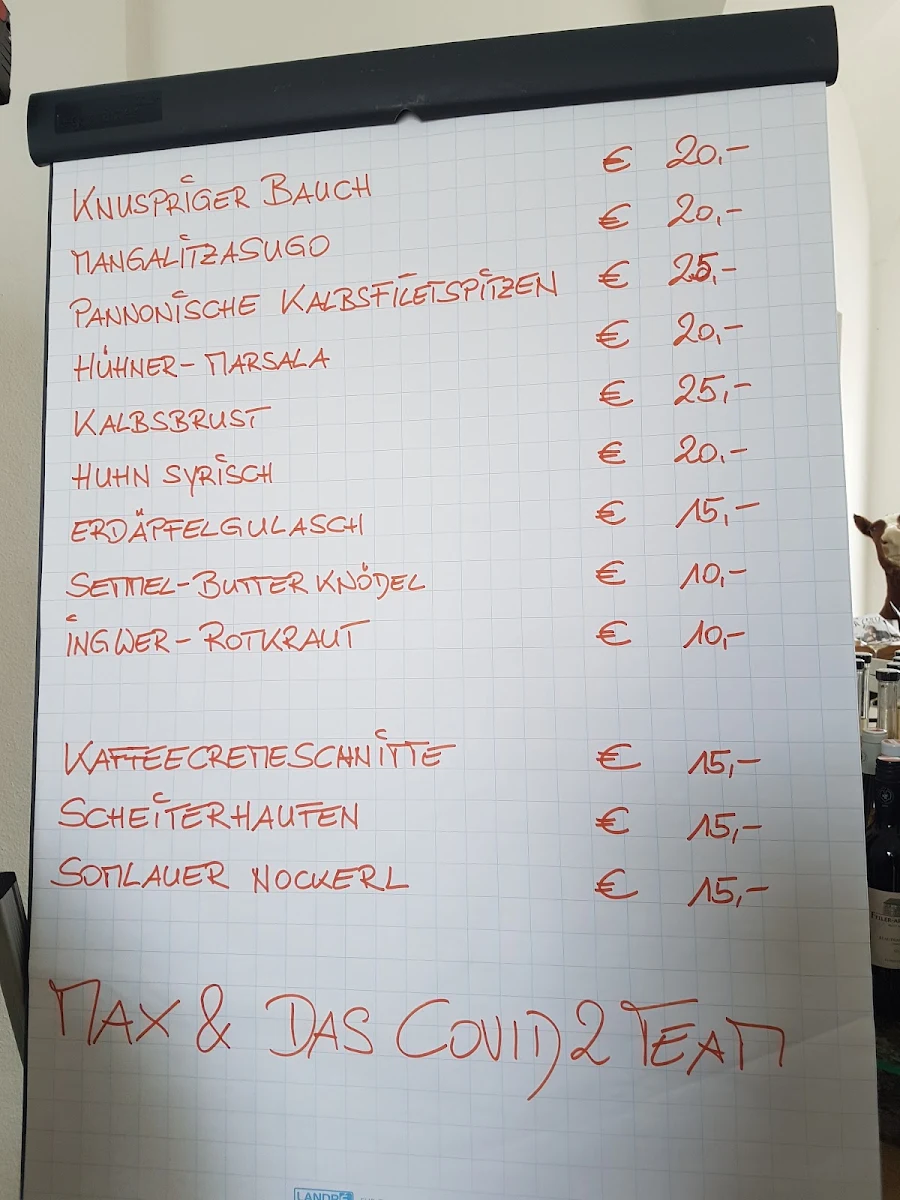 KNUSPRIGER BAUCH € 20,-
MANGALITZASUGO € 20,-
PANNONISCHE KALBSFILETSPITZEN € 25,-
HÜHNER-MARSALA € 20,-
KALBSBRUST € 25,-
HUHN SYRISCH € 20,-
ERDÄPFELGULASCH € 15,-
SEMMEL-BUTTER KNÖDEL € 10,-
INGWER-ROTKRAUT € 10,-
KAFFEECREMESCHNITTE € 15,-
SCHEITERHAUFEN € 15,-
SOMLAUER NOCKERL € 15,-
MAX & DAS COVID 2 TEAM
LANDRÉ